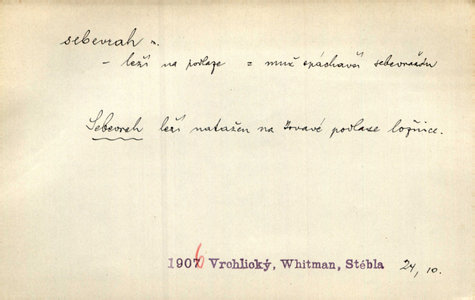 sebevrah m.
– leží na podlaze = muž spáchavší sebevraždu
Sebevrah leží natažen na krvavé podlaze ložnice.
1906 Vrchlický, Whitman, Stébla 24, 10.